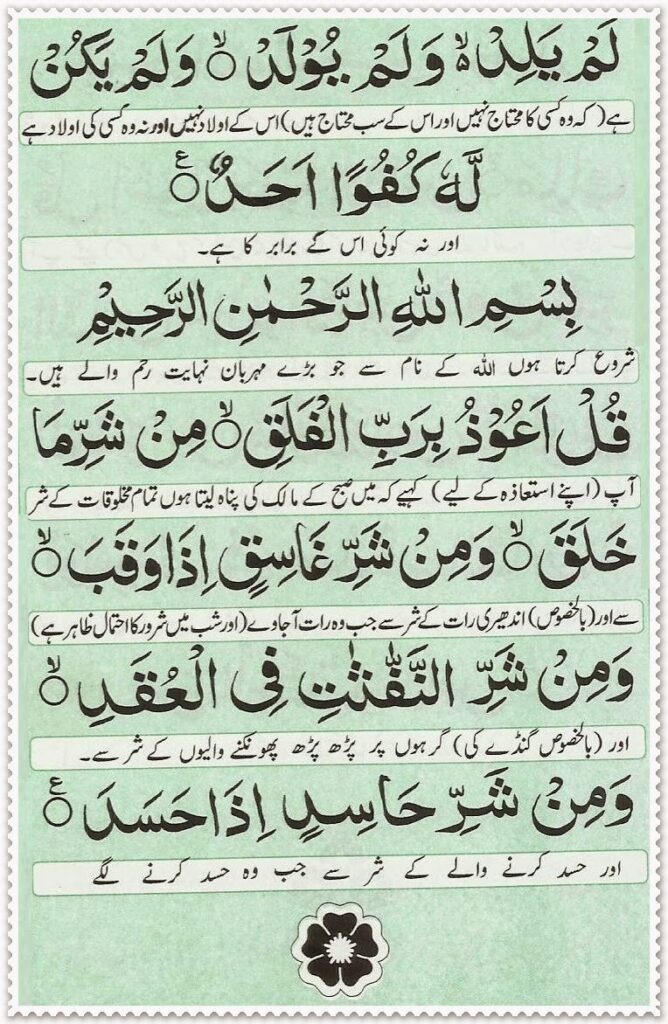 لَمْ يَلِدْ ۙ وَلَمْ يُوْلَدْ ۙ وَلَمْ يَكُنْ
ہے (کہ وہ کسی کا محتاج نہیں اور اس کے سب محتاج ہیں) اس کے اولاد نہیں اور نہ وہ کسی کی اولاد ہے
لَّهٗ كُفُوًا اَحَدٌ ۠
اور نہ کوئی اس گے برابر کا ہے۔
بِسْمِ اللهِ الرَّحْمٰنِ الرَّحِيْمِ
شروع کرتا ہوں اللہ کے نام سے جو بڑے مہربان نہایت رحم والے ہیں۔
قُلْ اَعُوْذُ بِرَبِّ الْفَلَقِ ۙ مِنْ شَرِّ مَا
آپ (اپنے استعاذہ کے لیے) کہیے کہ میں صبح کے مالک کی پناہ لیتا ہوں تمام مخلوقات کے شر
خَلَقَ ۙ وَمِنْ شَرِّ غَاسِقٍ اِذَا وَقَبَ ۙ
سے اور (بالخصوص) اندھیری رات کے شر سے جب وہ رات آجاوے (اور شب میں شرور کا احتمال ظاہر ہے)
وَمِنْ شَرِّ النَّفّٰثٰتِ فِى الْعُقَدِ ۙ
اور (بالخصوص گنڈے کی) گرہوں پر پڑھ پڑھ پھونکنے والیوں کے شر سے۔
وَمِنْ شَرِّ حَاسِدٍ اِذَا حَسَدَ ۠
اور حسد کرنے والے کے شر سے جب وہ حسد کرنے لگے